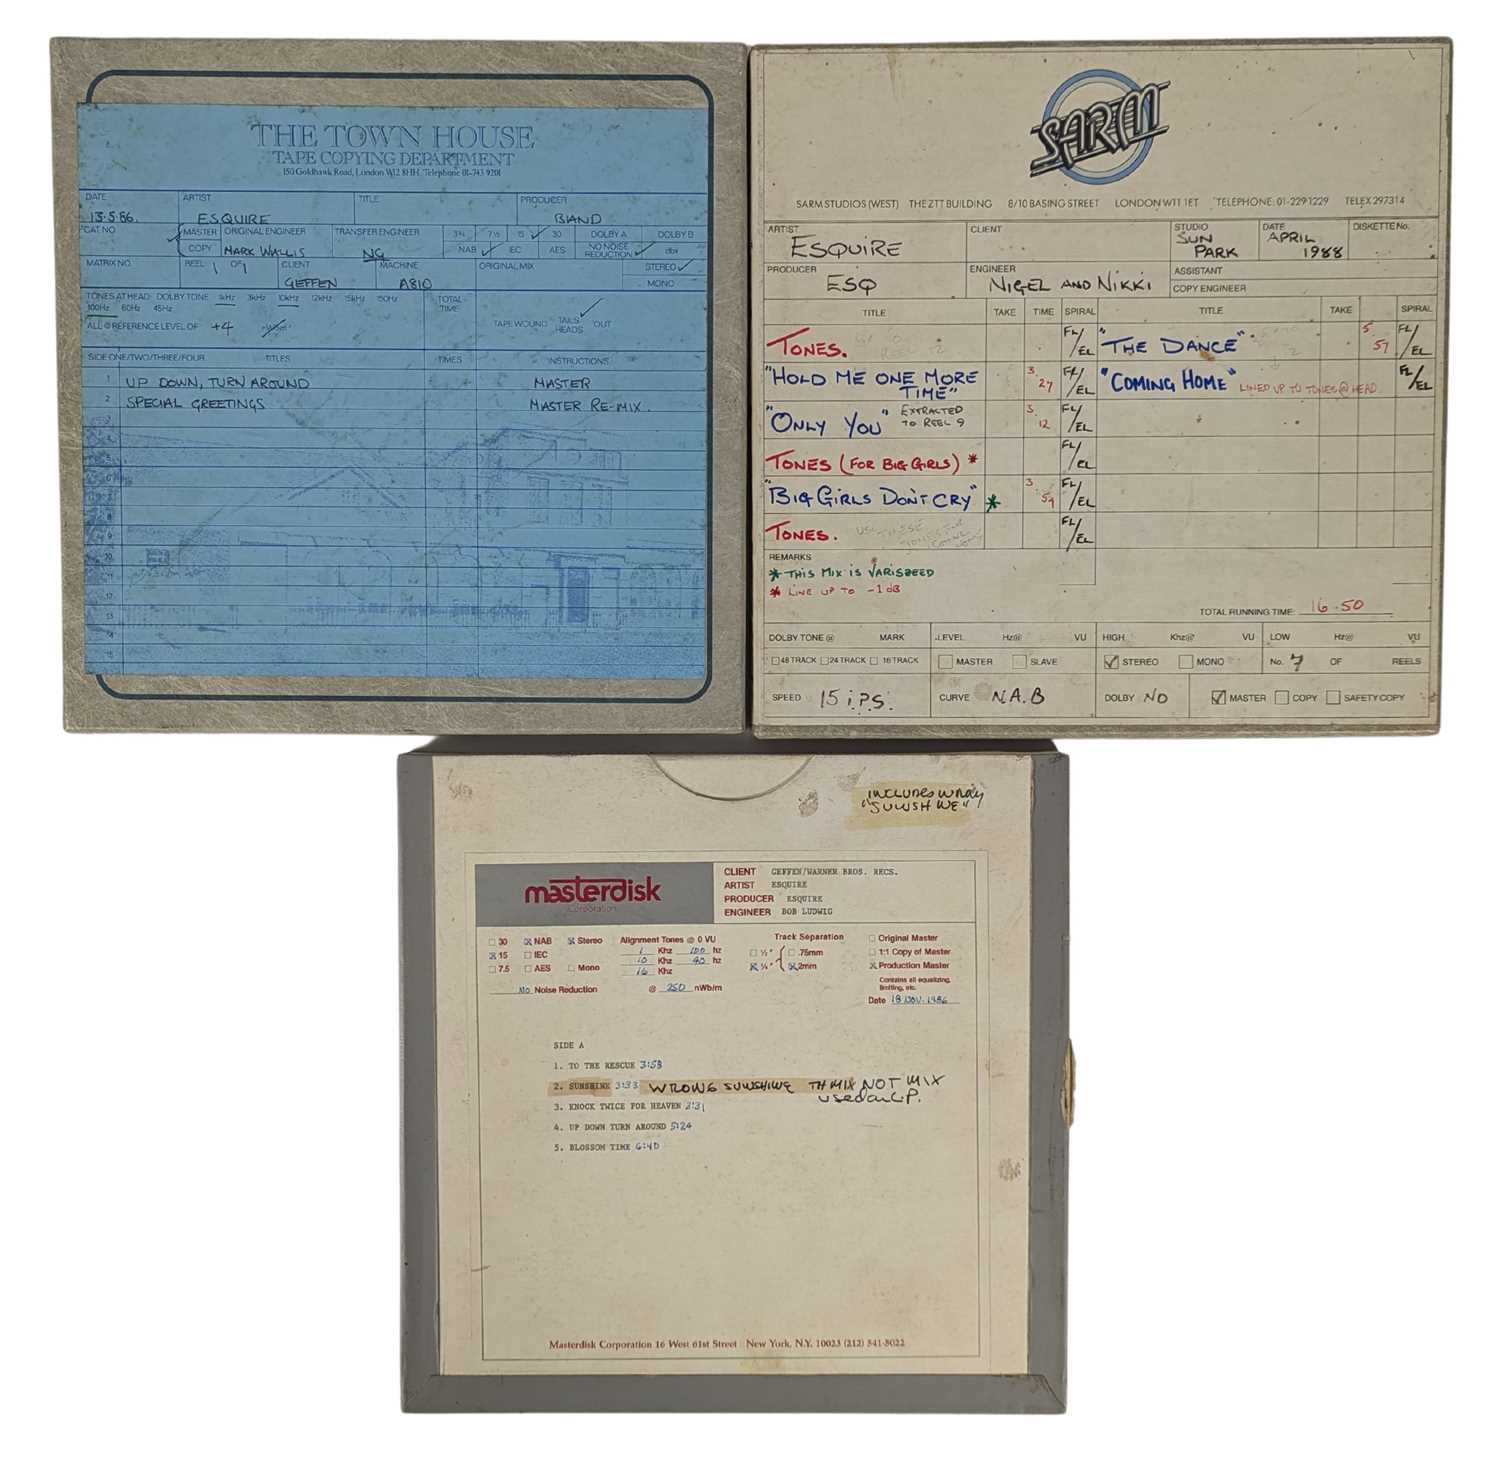 THE TOWN HOUSE
TAPE COPYING DEPARTMENT
150 Goldhawk Road, London W12 8HH. Telephone 01-743 9201
DATE ARTIST TITLE PRODUCER
13.5.86. ESQUIRE BAND
CAT NO MASTER ORIGINAL ENGINEER TRANSFER ENGINEER 3¾ 7½ 15 30 DOLBY A DOLBY B
COPY MARK WALLIS NG NAB IEC AES NO NOISE REDUCTION dbx
MATRIX NO. REEL 1 OF 1 CLIENT MACHINE ORIGINAL MIX STEREO
GEFFEN A810 MONO
TONES AT HEAD: DOLBY TONE 1kHz 3kHz 10kHz 12kHz 15kHz 50Hz TOTAL TIME:
100Hz 60Hz 45Hz TAPE WOUND TAILS HEADS OUT
ALL @ REFERENCE LEVEL OF +4
SIDE ONE/TWO/THREE/FOUR TITLES TIMES INSTRUCTIONS
1 UP DOWN, TURN AROUND MASTER
2 SPECIAL GREETINGS MASTER RE-MIX.
3
4
5
6
7
8
9
10
11
12
13
14
15
SARM
SARM STUDIOS (WEST) THE ZTT BUILDING 8/10 BASING STREET LONDON W11 1ET TELEPHONE: 01-229 1229 TELEX 297314
ARTIST CLIENT STUDIO DATE DISKETTE No.
ESQUIRE SUN PARK APRIL 1988
PRODUCER ENGINEER ASSISTANT
ESQ NIGEL AND NIKKI COPY ENGINEER
TITLE TAKE TIME SPIRAL TITLE TAKE SPIRAL
TONES. FL/EL "THE DANCE" 5 57 FL/EL
"HOLD ME ONE MORE TIME" 3. 27 FL/EL "COMING HOME" LINED UP TO TONES @ HEAD. FL/EL
"ONLY YOU" EXTRACTED TO REEL 9 3. 12 FL/EL
TONES (FOR BIG GIRLS) * FL/EL
"BIG GIRLS DON'T CRY" * 3. 59 FL/EL
TONES. FL/EL
REMARKS
* THIS MIX IS VARISPEED
* LINE UP TO -1dB
TOTAL RUNNING TIME: 16.50
DOLBY TONE @ MARK LEVEL Hz@ VU HIGH Khz@ VU LOW Hz@ VU
48 TRACK 24 TRACK 16 TRACK MASTER SLAVE STEREO MONO No. 7 OF REELS
SPEED 15 i.P.S. CURVE N.A.B DOLBY NO MASTER COPY SAFETY COPY
INCLUDES WRONG
"SUNSHINE"
masterdisk
Corporation
CLIENT GEFFEN/WARNER BROS. RECS.
ARTIST ESQUIRE
PRODUCER ESQUIRE
ENGINEER BOB LUDWIG
30 NAB Stereo Alignment Tones @ 0 VU Track Separation Original Master
15 IEC 1 Khz 100 hz ½" .75mm 1:1 Copy of Master
7.5 AES Mono 10 Khz 40 hz ¼" 2mm Production Master
16 Khz Contains all equalizing, limiting, etc.
No Noise Reduction @ 250 nWb/m Date 18 NOV. 1986
SIDE A
1. TO THE RESCUE 3:58
2. SUNSHINE 3:33 WRONG SUNSHINE TH MIX NOT MIX
used on LP.
3. KNOCK TWICE FOR HEAVEN 3:31
4. UP DOWN TURN AROUND 5:24
5. BLOSSOM TIME 6:40
Masterdisk Corporation 16 West 61st Street New York, N.Y. 10023 (212) 541-5022